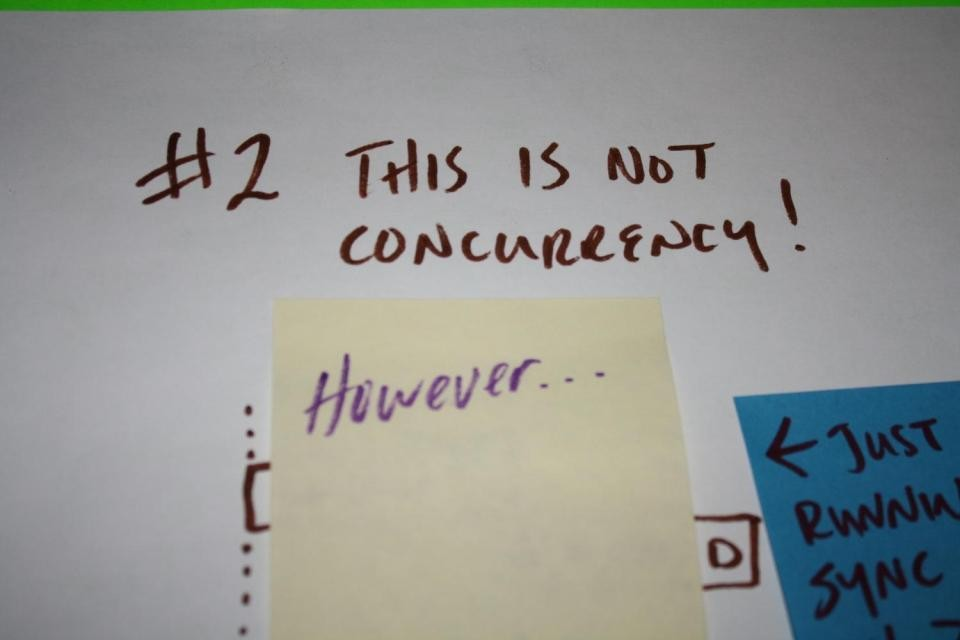 #2 THIS IS NOT
CONCURRENCY!
However...
← JUST
SYNC
D